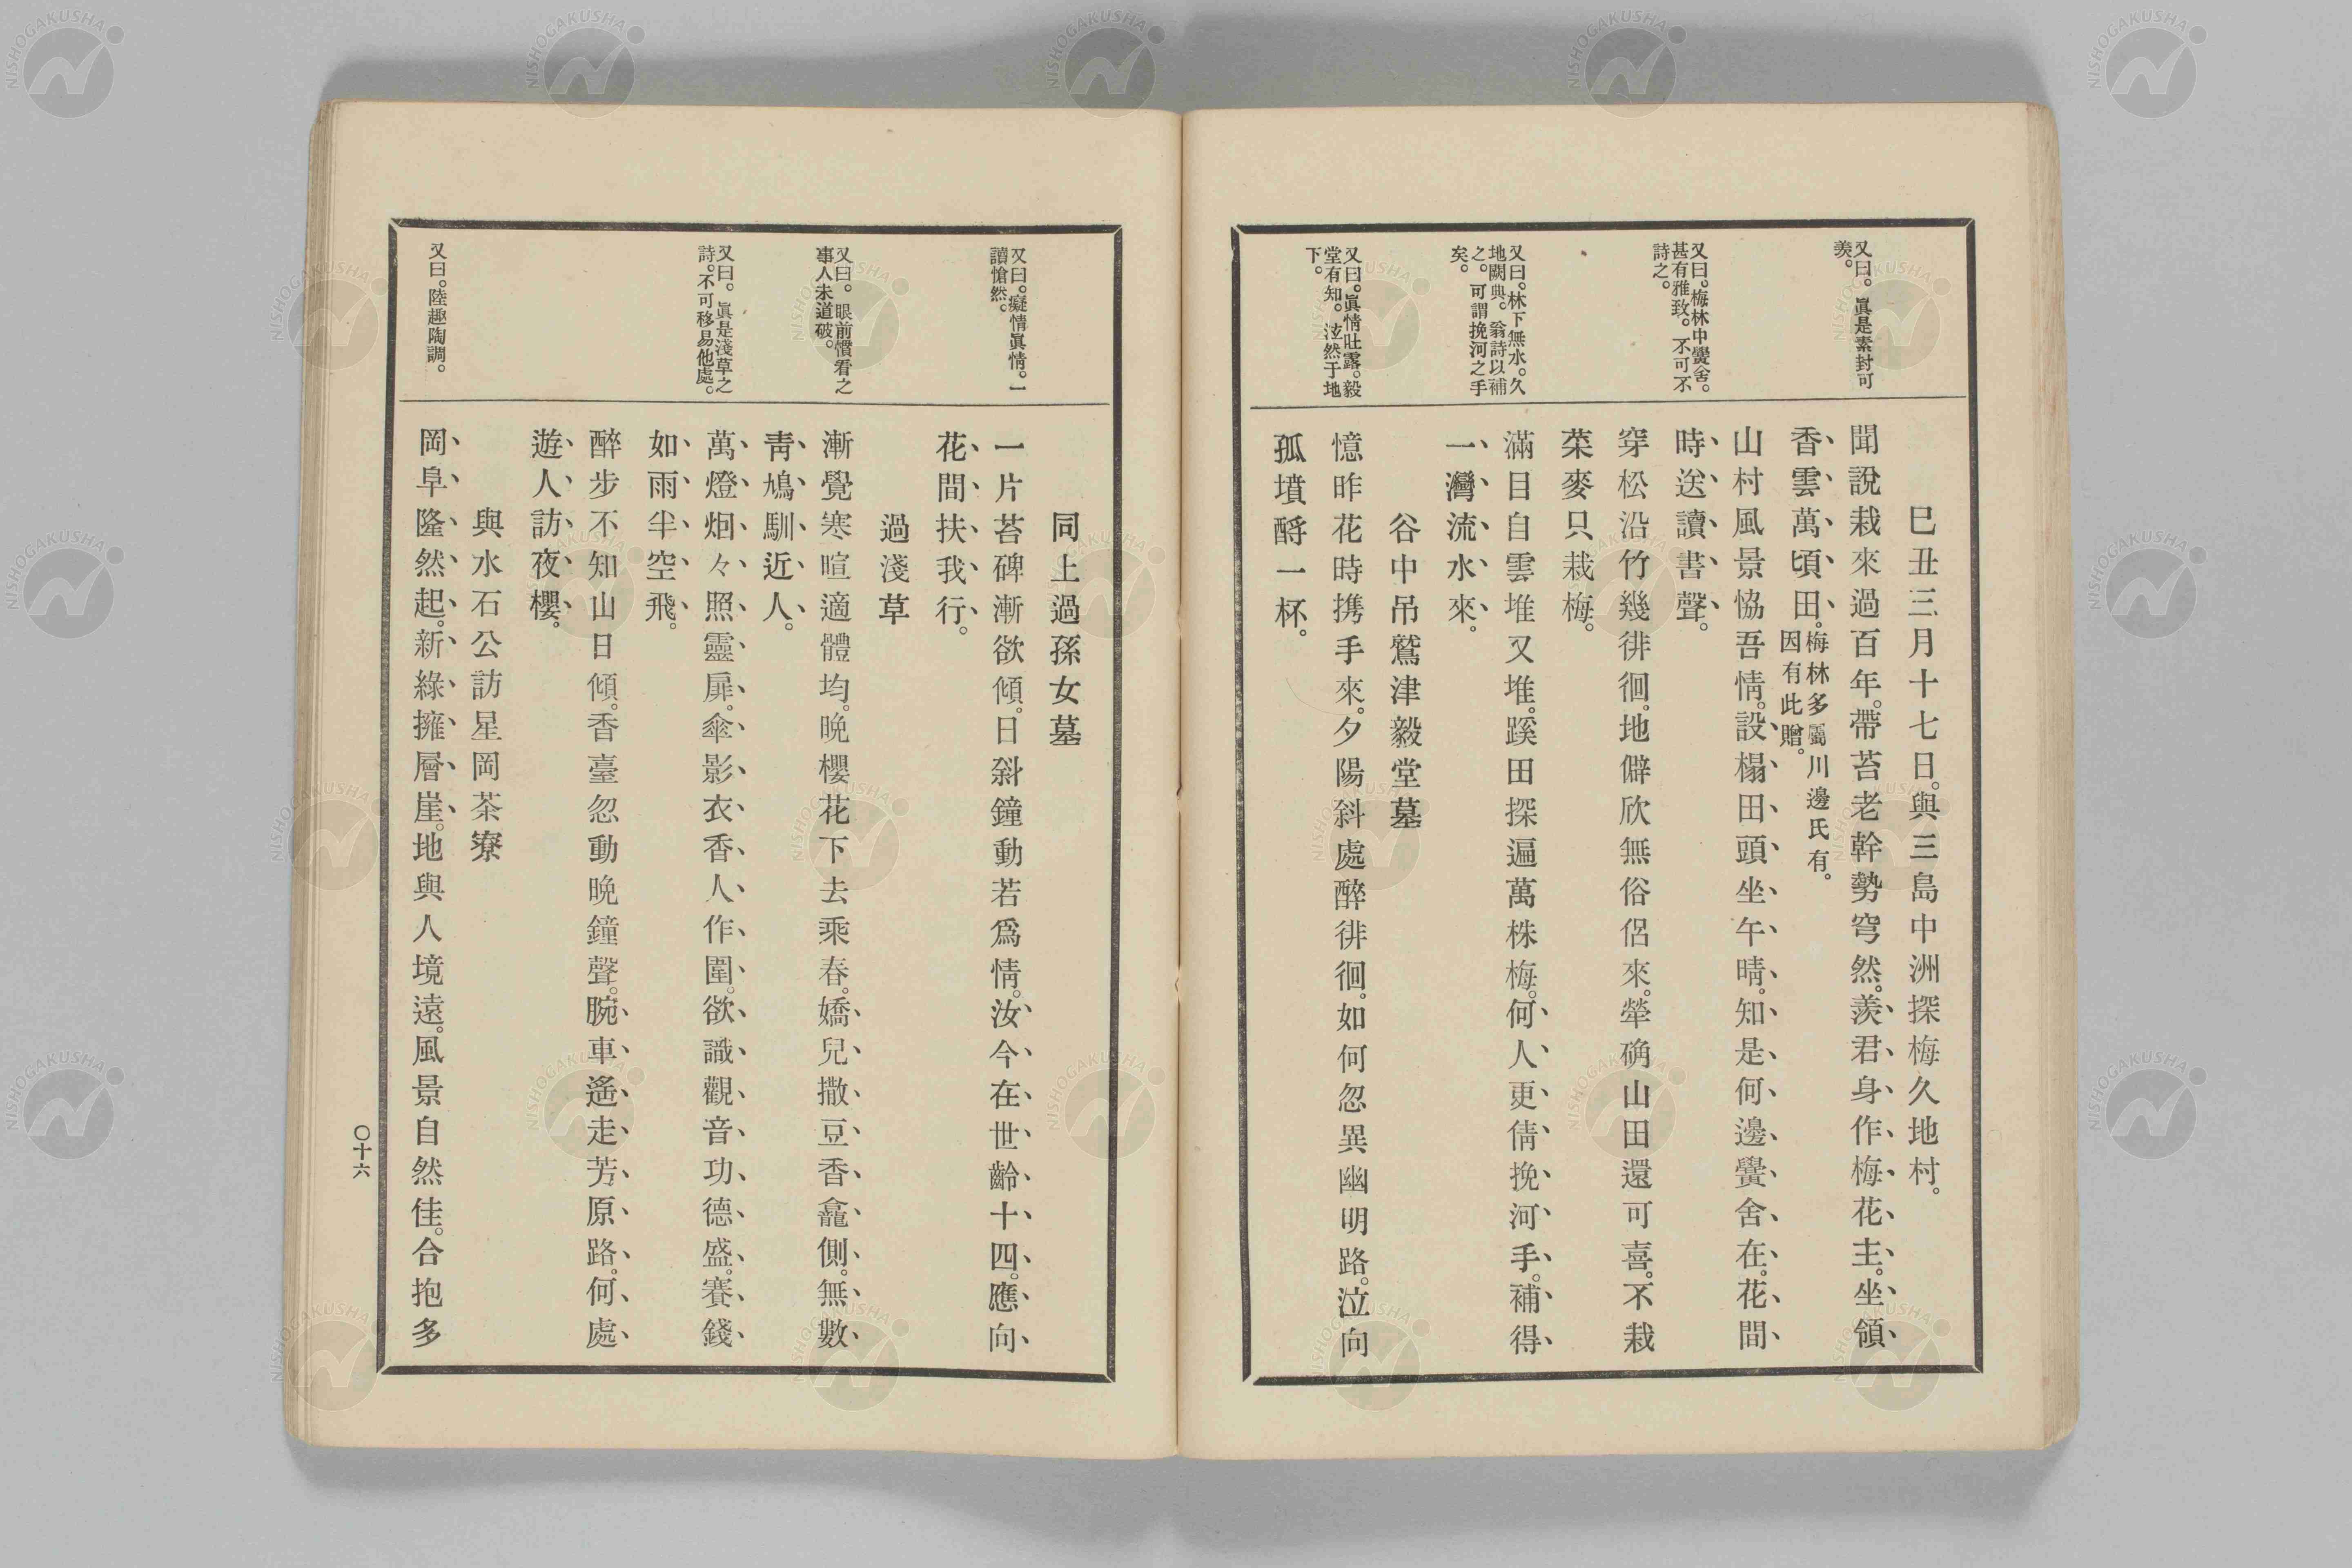 又曰。眞是素封可
羨。
又曰。梅林中黌舍。
甚有雅致。不可不
詩之。
又曰。林下無水。久
地闕典。翁詩以補
之。可謂挽河之手
矣。
又曰。眞情吐露。毅
堂有知。泫然于地
下。
巳丑三月十七日。與三島中洲探梅久地村。
聞說栽來過百年。帶苔老幹勢穹然。羨君身作梅花主。坐領
香雲萬頃田。梅林多屬川邊氏有。
因有此贈。
山村風景恊吾情。設榻田頭坐午晴。知是何邊黌舍在。花間
時送讀書聲。
穿松沿竹幾徘徊。地僻欣無俗侶來。犖确山田還可喜。不栽
菜麥只栽梅。
滿目自雲堆又堆。蹊田探遍萬株梅。何人更倩挽河手。補得
一灣流水來。
谷中吊鷲津毅堂墓
憶昨花時携手來。夕陽斜處醉徘徊。如何忽異幽明路。泣向
孤墳酹一杯。
又曰。癡情眞情。一
讀愴然。
又曰。眼前慣看之
事人未道破。
又曰。眞是淺草之
詩。不可移易他處。
又曰。陸趣陶調。
同上過孫女墓
一片苔碑漸欲傾。日斜鐘動若爲情。汝今在世齡十四。應向
花間扶我行。
過淺草
漸覺寒暄適體均。晩櫻花下去乘春。嬌兒撒豆香龕側。無數
靑鳩馴近人。
萬燈烱々照靈扉。傘影衣香人作圍。欲識觀音功德盛。賽錢
如雨半空飛。
醉步不知山日傾。香臺忽動晩鐘聲。腕車遙走芳原路。何處
遊人訪夜櫻。
與水石公訪星岡茶寮
岡阜隆然起。新綠擁層崖。地與人境遠。風景自然佳。合抱多
〇十六